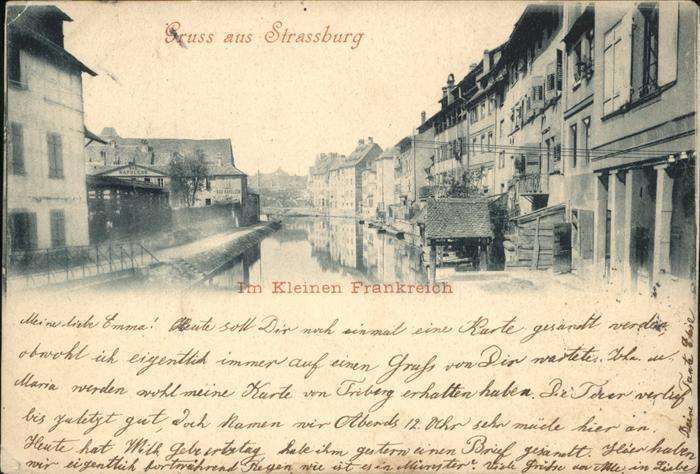 Gruss aus Strassburg
NAPOLEON
Im Kleinen Frankreich
Meine liebe Emma! Heute soll Dir noch einmal eine Karte gesandt werden,
obwohl ich eigentlich immer auf einen Gruß von Dir wartete. Joh. u.
Maria werden wohl meine Karte von Triberg erhalten haben. Die Tour verlief
bis zuletzt gut, doch kamen wir Abends 12 Uhr sehr müde hier an.
Heute hat Willy Geburtstag habe ihm gestern einen Brief gesandt. Hier haben
wir eigentlich fortwährend Regen wie ist es in Münster? Viele Grüße an Alle in